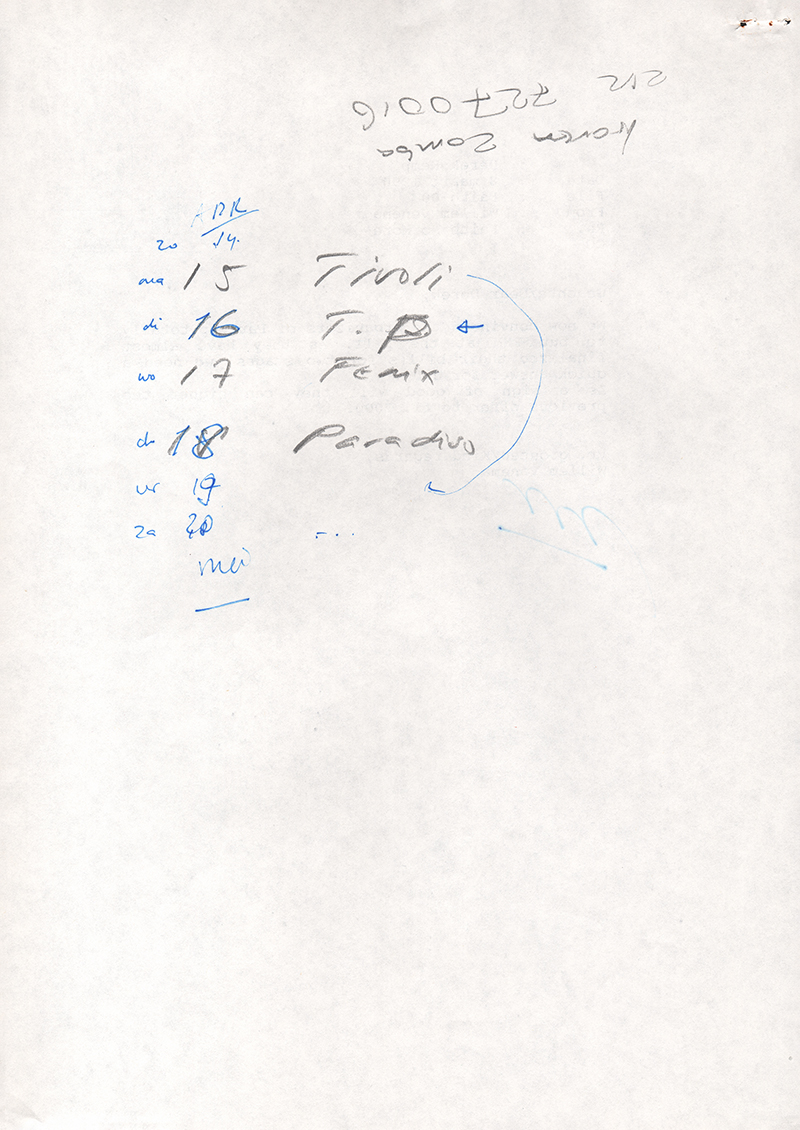 212 7270016
Karen Zomba
APR
zo 14.
ma 15 Tivoli
di 16 T.P. ←
wo 17 Fenix
do 18 Paradiso
vr 19
za 20 - ...
mei